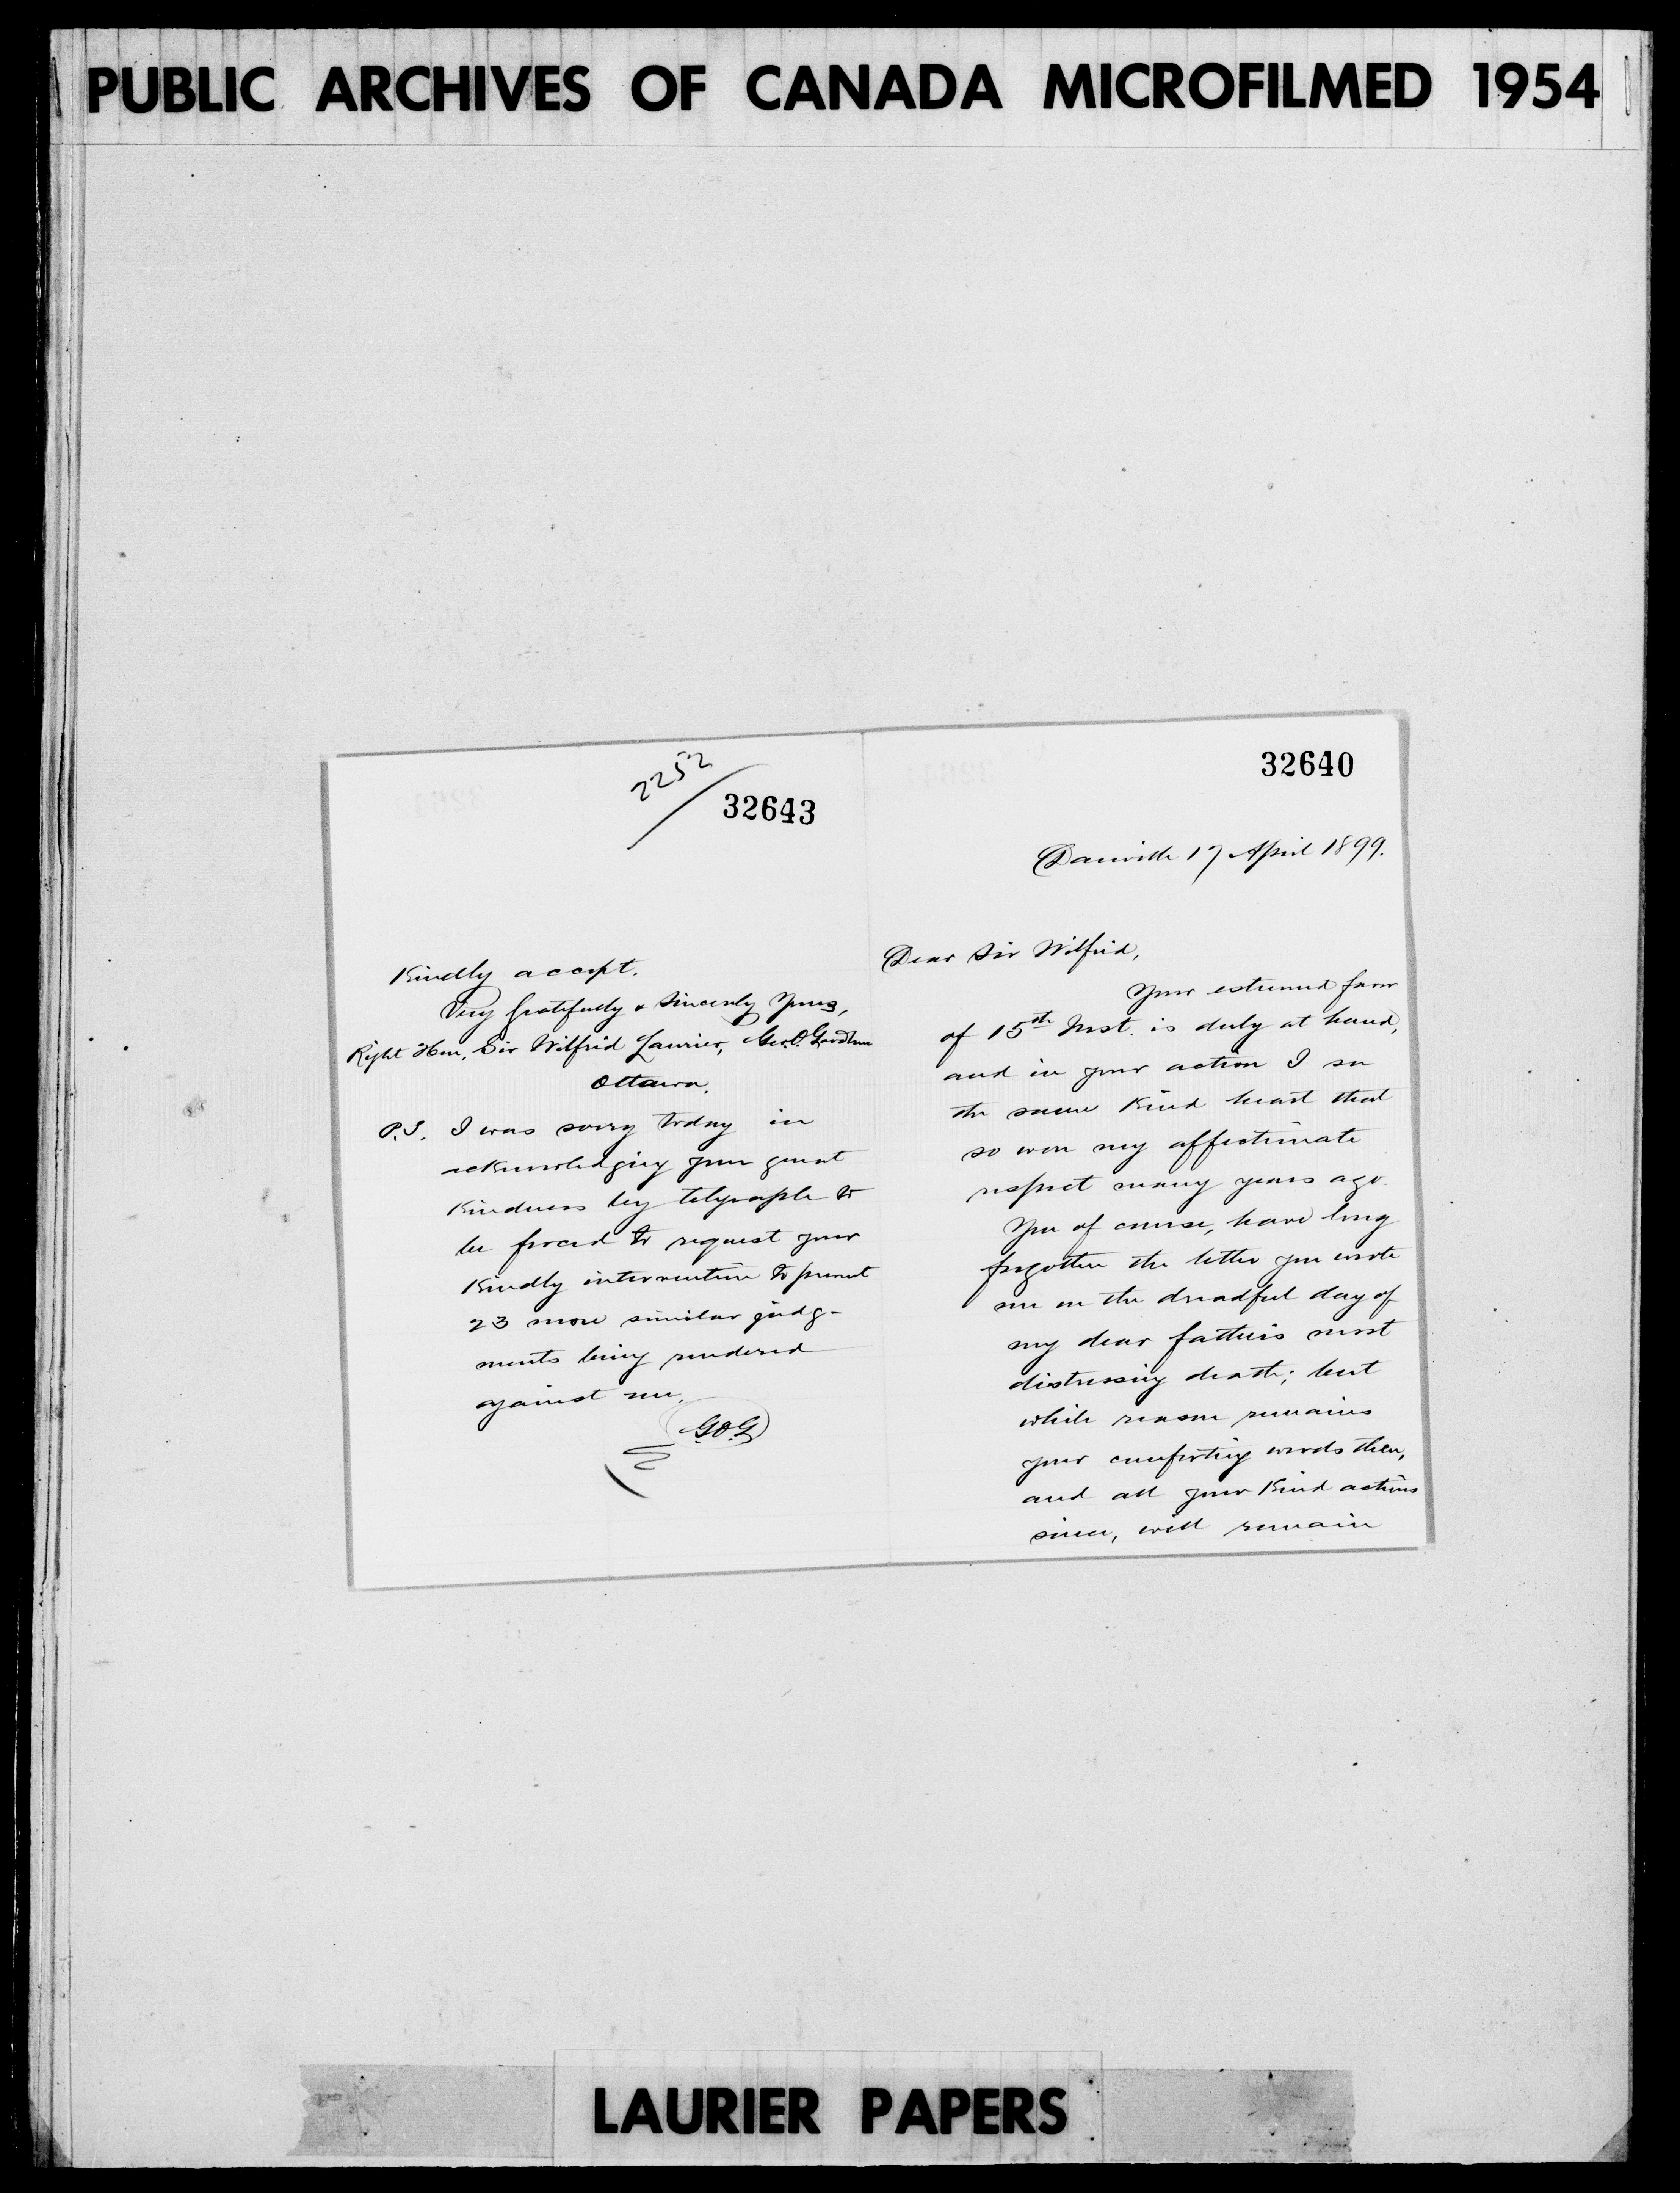 PUBLIC ARCHIVES OF CANADA MICROFILMED 1954
2252
32643
Kindly accept.
Very gratefully & Sincerely Yours,
Right Hon. Sir Wilfrid Laurier, Geo. O.
Ottawa.
P.S. I was sorry today in
acknowledging your great
Kindness by telegraph to
be forced to request your
Kindly intervention to prevent
23 more similar judg-
ments being rendered
against me.
G.O.G
32640
Danville 17 April 1899.
Dear Sir Wilfrid,
Your esteemed favor
of 15th Inst. is duly at hand,
and in your action I see
the same Kind heart that
so won my affectionate
respect many years ago.
You of course, have long
forgotten the letter you wrote
me on the dreadful day of
my dear father's most
distressing death; but
while reason remains
your comforting words then,
and all your Kind actions
since, will remain
LAURIER PAPERS